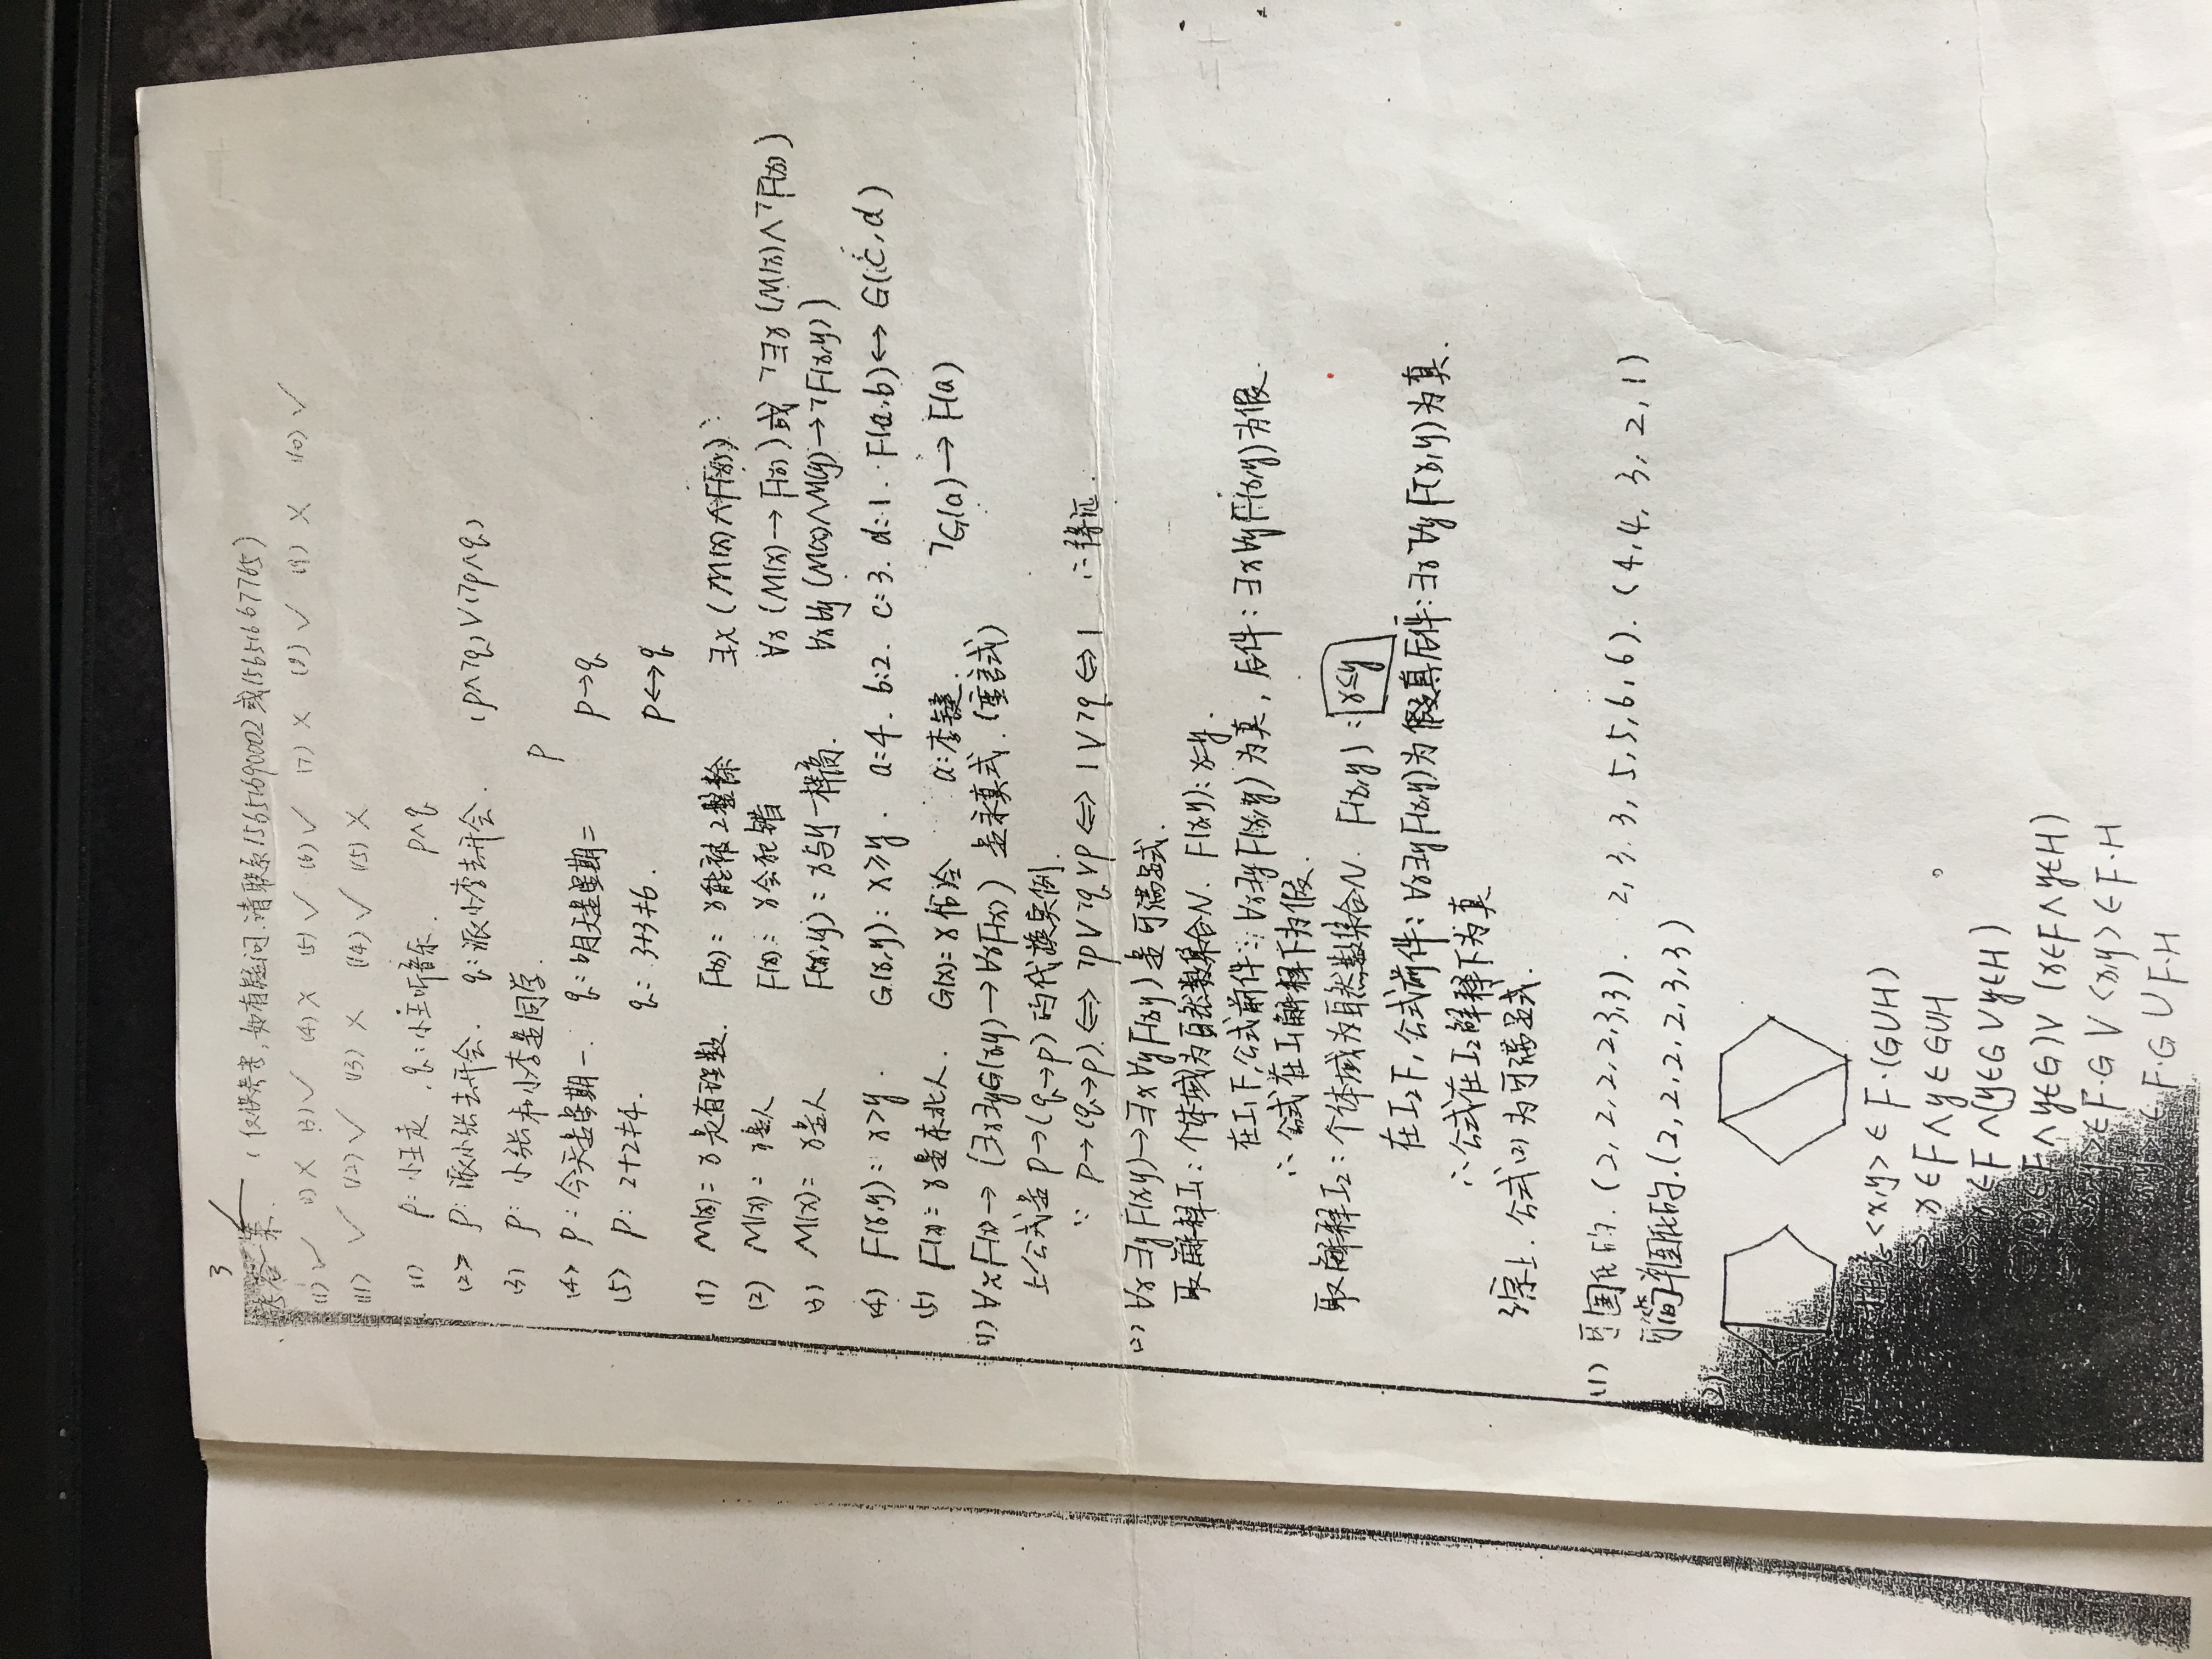 3
答案 (仅供参考,如有疑问.请联系15651690002或15651667765)
(1) ✓ (2) × (3) ✓ (4) × (5) ✓ (6) ✓ (7) × (8) ✓ (9) × (10) ✓
(11) ✓ (12) ✓ (13) × (14) ✓ (15) ×
(1) p:小王走, q:小王听音乐. p∧q
(2) p:派小张去开会. q:派小李去开会. (p∧¬q)∨(¬p∧q)
(3) p:小张和小李是同学. p
(4) p:今天是星期一. q:明天是星期二 p→q
(5) p: 2+2≠4. q: 3+3≠6. p↔q
(1) M(x): x是有理数. F(x): x能被2整除 ∃x(M(x)∧F(x))
(2) M(x): x是人 F(x): x会犯错 ∀x(M(x)→F(x))或 ¬∃x(M(x)∧¬F(x))
(3) M(x): x是人 F(x,y): x与y一样高. ∀x∀y(M(x)∧M(y)→¬F(x,y))
(4) F(x,y): x>y. G(x,y): x≥y. a:4. b:2. c:3. d:1. F(a,b)↔G(c,d)
(5) F(x): x是东北人. G(x): x怕冷 a:李键. ¬G(a)→F(a)
(1) ∀xF(x)→(∃x∃yG(x,y)→∀xF(x)) 是永真式.(重言式)
上公式是p→(q→p)的代换实例.
∵ p→(q→p)⇔¬p∨¬q∨p⇔1∨¬q⇔1 ∴得证.
(2) ∀x∃yF(x,y)→∃x∀yF(x,y)是可满足式.
取解释I₁:个体域为自然数集合N. F(x,y):x=y.
在I₁下,公式前件:∀x∃yF(x,y)为真,后件:∃x∀yF(x,y)为假.
∴公式在I₁解释下为假.
取解释I₂:个体域为自然数集合N. F(x,y):x≤y
在I₂下,公式前件:∀x∃yF(x,y)为真后件:∃x∀yF(x,y)为真.
∴公式在I₂解释下为真
综上.公式(2)为可满足式.
(1) 可图化的.(2,2,2,2,3,3). 2,3,3,5,5,6,6).(4,4,3,2,1)
可简单图化的.(2,2,2,2,3,3)
(2)
<x,y>∈F·(G∪H)
⇔x∈F∧y∈G∪H
⇔x∈F∧(y∈G∨y∈H)
∈F∧y∈G)∨(x∈F∧y∈H)
y>∈F·G∨<x,y>∈F·H
∈F·G∪F·H